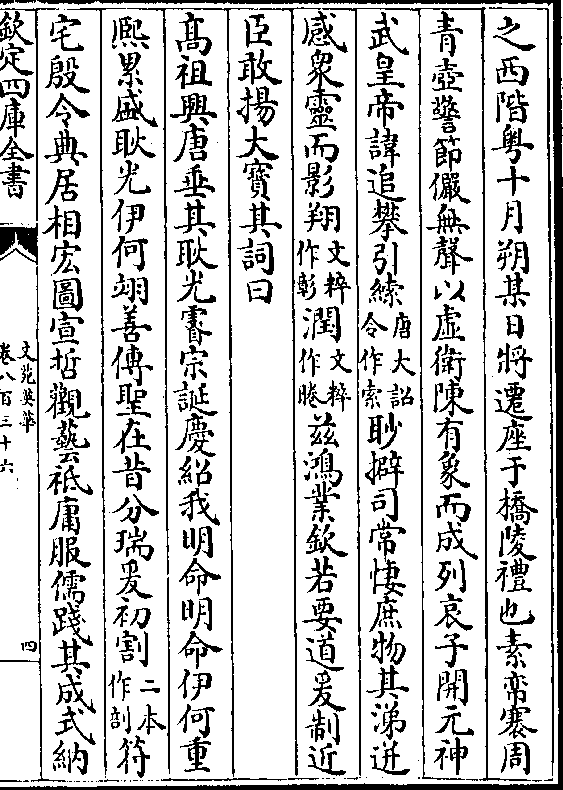 之西階粤十月朔某日將遷座于橋陵禮也素帟褰周
青壺警節儼無聲以虚衛陳有象而成列哀子開元神
武皇帝諱追攀引繂唐大詔令作索眇擗司常悽庶物其涕迸
感衆靈而影翔文粹作彰潤文粹作腃兹鴻業欽若要道爰制近
臣敢揚大寳其詞曰
髙祖興唐垂其耿光睿宗誕慶紹我明命明命伊何重
熙累盛耿光伊何翊善傳聖在昔分瑞爰初割二本作剖符
宅殷令典居相宏圖宣哲觀藝祗庸服儒踐其成式納
欽定四庫全書
文苑英華
卷八百三十六
四